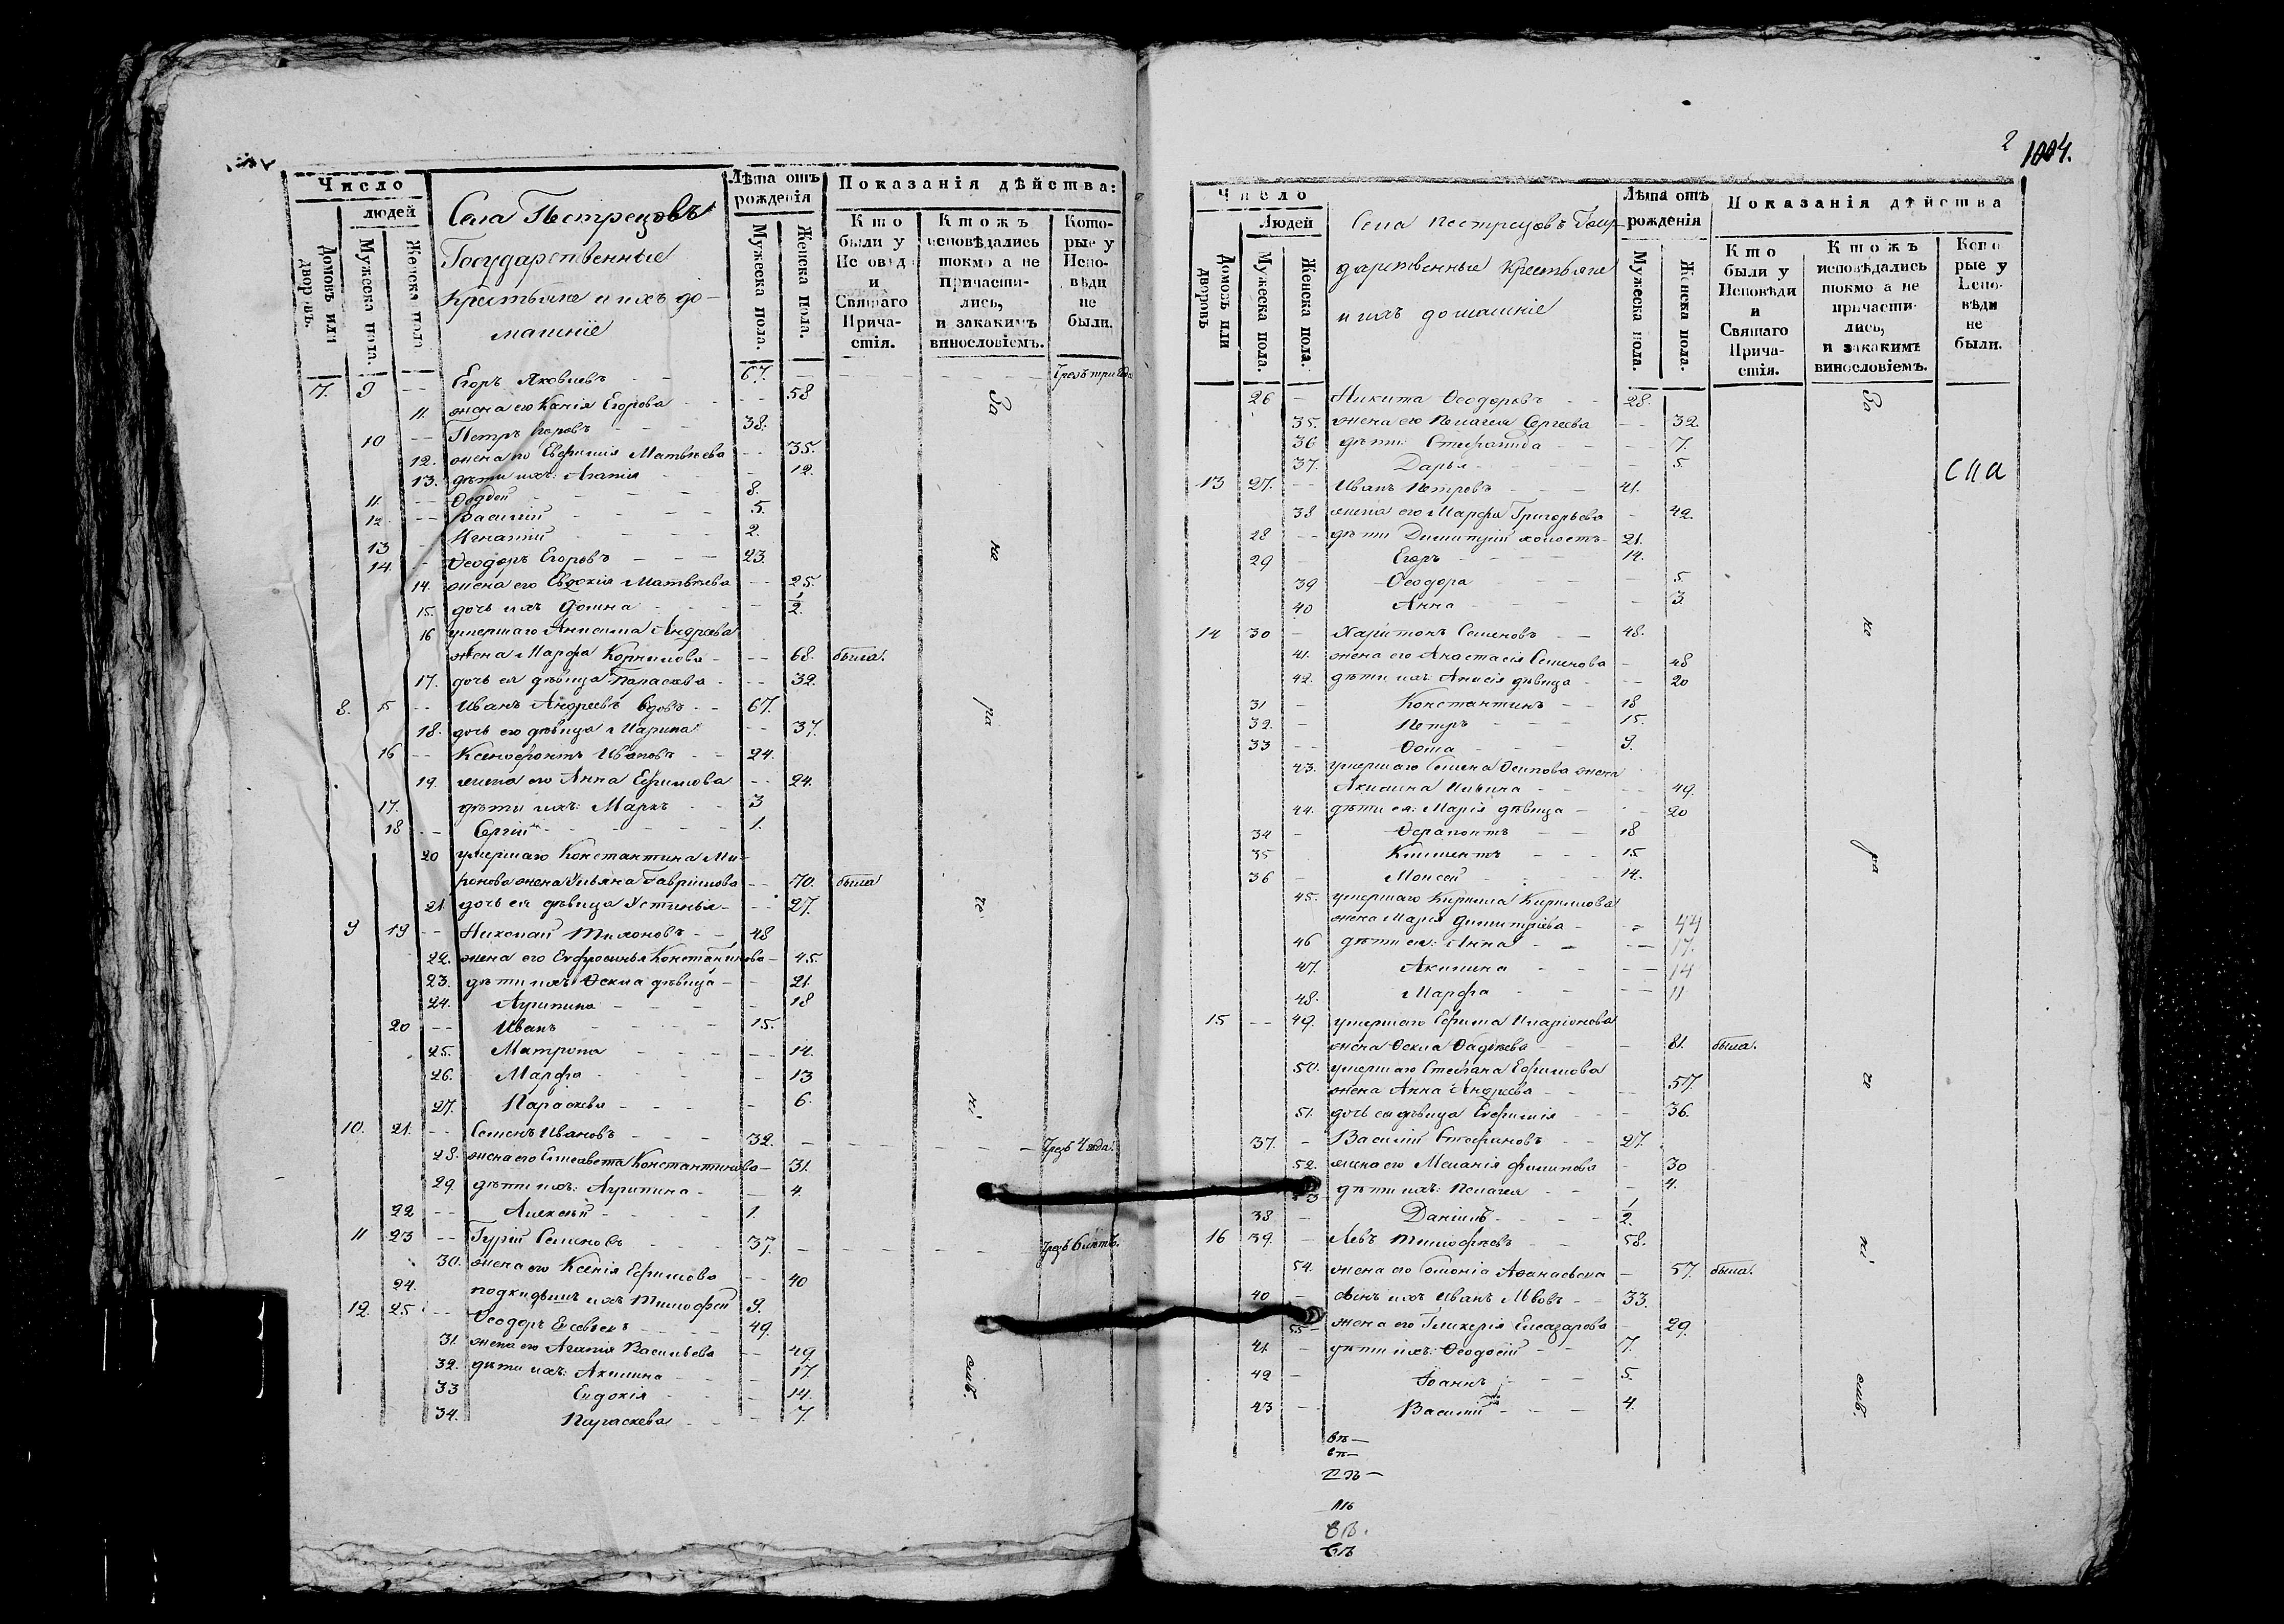 Число
людей
Домовъ или дворовъ.
Мужеска пола.
Женска пола
Села Пестрецовъ
Государственные
Крестьяне и ихъ до-
машніе
Лѣта отъ рожденія
Мужеска пола.
Женска пола.
Показанія дѣйства:
Кто были у Исповѣди и Святаго Причастія.
Ктожъ исповѣдались токмо а не причастились, и закакимъ винословіемъ.
Которые у Исповѣди не были.
7. 9 -- Егоръ Яковлевъ - 67. - Чрезъ три года
11. жена его Егорова - - 58
10 -- Петръ Егоровъ - - - 38.
12. жена его Евфимія Матвѣева -- 35.
13. дѣти ихъ: Агапія - - 12.
11 -- 8.
12 -- Василій - - - - 5.
13 - Игнатій - - - 2.
14. - Ѳеодоръ Егоровъ - - - 23.
14. жена его Евдокія Матвѣева -- 25.
15. дочь ихъ - - - 1/2.
16 умершаго Анисима Андреева
жена Марфа Корнилова - -- 68. была.
17. дочь ея дѣвица Параскева - -- 32.
8. 15 -- Иванъ Андреевъ вдовъ - - 67.
18. дочь его дѣвица Марина -- 37.
16 -- Ксенофонтъ Ивановъ - - 24.
19. жена его Анна Ефимова -- 24.
17. дѣти ихъ: Маркъ - - 3
18 -- Сергій - - - - - 1.
20 умершаго Константина Ми-
ронова жена Ульяна Гаврилова -- 70. была
21. дочь ея дѣвица Устинья - -- 27.
9 19 -- Николай Тихоновъ - - 48
22. жена его Евфросинья Константинова - 45.
23. дѣти ихъ Ѳекла дѣвица - - 21.
24. Агрипина - - - 18
20 -- Иванъ - - - - 15.
25. Матрона - - - -- 14.
26. Марфа - - - - 13
27. Параскева - - - - 6.
10. 21. -- Семенъ Ивановъ - - - 32. - Чрезъ 4 года.
28. жена его Елисавета Константинова - 31.
29. дѣти ихъ: Агрипина - - 4.
22 -- Алексѣй - - - - 1.
11 23 -- Гурій Семеновъ - - - 37. - Чрезъ 6 лѣтъ.
30. жена его Ксенія Ефимова -- 40
24. подкидышъ ихъ Тимофей 9.
12. 25. -- Ѳеодоръ - - - 49.
31. жена его Агапія Васильева -- 49.
32. дѣти ихъ: Акилина - - - 17.
33 Евдокія - - - 14.
34. Параскева - - - 7.
За
не
ра
че
ні
емъ.
2
1004.
Число
Людей
Домовъ или дворовъ
Мужеска пола.
Женска пола.
Села Пестрецовъ Госу-
дарственные Крестьяне
и ихъ домашніе
Лѣта отъ рожденія
Мужеска пола.
Женска пола.
Показанія дѣйства
Кто были у Исповѣди и Святаго Причастія.
Ктожъ исповѣдались токмо а не причастились, и закакимъ винословіемъ.
Которые у Исповѣди не были.
26 - Никита Ѳеодоровъ - - 28.
35. жена его Пелагея Сергеева -- 32
36 дѣти: Стефанида - - -- 7.
37. Дарья - - - - 5.
13 27. -- Иванъ Петровъ - - - 41.
38 жена его Марфа Григорьева - 42.
28 -- дѣти Димитрій холостъ - 21.
29 - Егоръ - - - 14.
39 Ѳеодора - - - 5.
40 Анна - - - - 3.
14 30 - Харитонъ Семеновъ - - 48.
41. жена его Анастасія Семенова - 48
42. дѣти ихъ: Анисія дѣвица - -- 20
31 - Константинъ - - 18
32. - Петръ - - - 15.
33 -- Ѳома - - - 9.
43. умершаго Семена Осипова жена
Акилина Ильина - - -- 49.
44. дѣти ея: Марія дѣвица - - 20
34 - Ѳерапонтъ - - 18
35 Климентъ - - - 15
36 - Моисей - - - 14.
45. умершаго Кирила Кирилова
жена Марія Димитріева - -- 44
46 дѣти ея: Анна - - -- 17.
47. Акилина - - -- 14
48. Марфа - - -- 11
15 -- 49. умершаго Ефима Иларіонова
жена Ѳекла Ѳадѣева - - - 81. была.
50. умершаго Стефана Ефимова
жена Анна Андреева - - -- 57.
51. дочь ея дѣвица Евфимія - - 36.
37. - Василій Стефановъ - - 27.
52. жена его Меланія Филипова - 30
3 дѣти ихъ: Пелагея - - - 4.
38 - Даніилъ - - - 1/2.
16 39. - Левъ Тимофѣевъ - 58.
54. жена его Соломонія Аѳанасьева - 57. была.
40 - сынъ ихъ Иванъ Львовъ - - 33.
55 - жена его Гликерія Елеазарова 29.
41 - дѣти ихъ: Ѳеодосій - - 7.
42 - Іоаннъ - - - 5.
43 -- Василій - - - 4.
За
не
ра
че
ні
емъ.
вп-
вп-